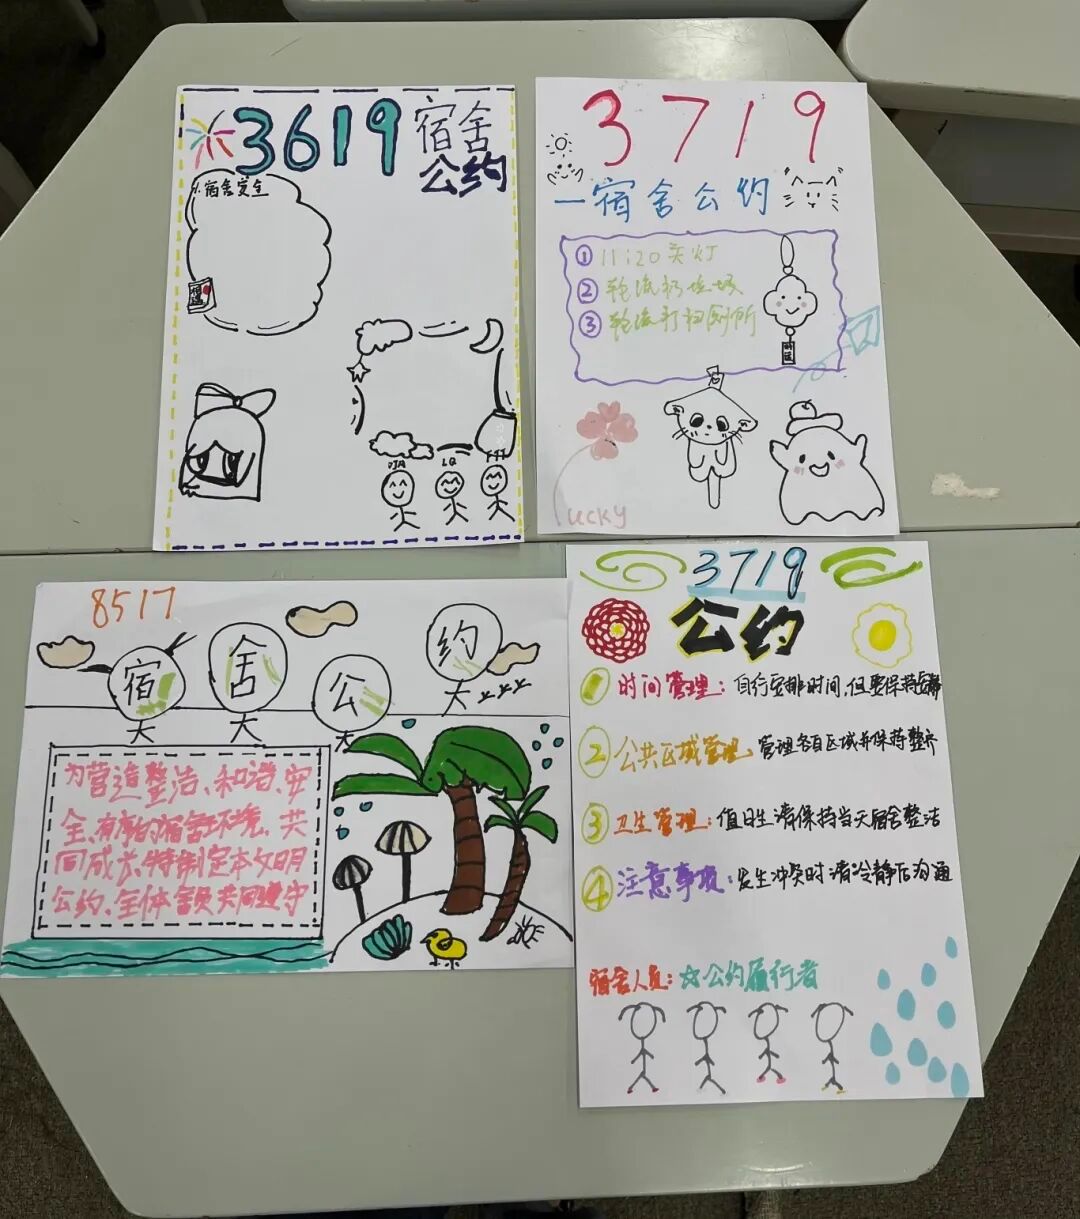 3619 宿舍
公约
1.宿舍安全
3719
一宿舍公约
① 11:20关灯
② 轮流扔垃圾
③ 轮流打扫厕所
ucky
8517
宿舍公约
为营造整洁、和谐、安
全、有序的宿舍环境、共
同成长,特制定本文明
公约、全体舍员共同遵守
3719
公约
1 时间管理：自行安排时间,但要保持安静
2 公共区域管理 管理各自区域并保持整齐
3 卫生管理：值日生请保持当天宿舍整洁
4 注意事项：发生冲突时请冷静后沟通
宿舍人员：☆公约履行者